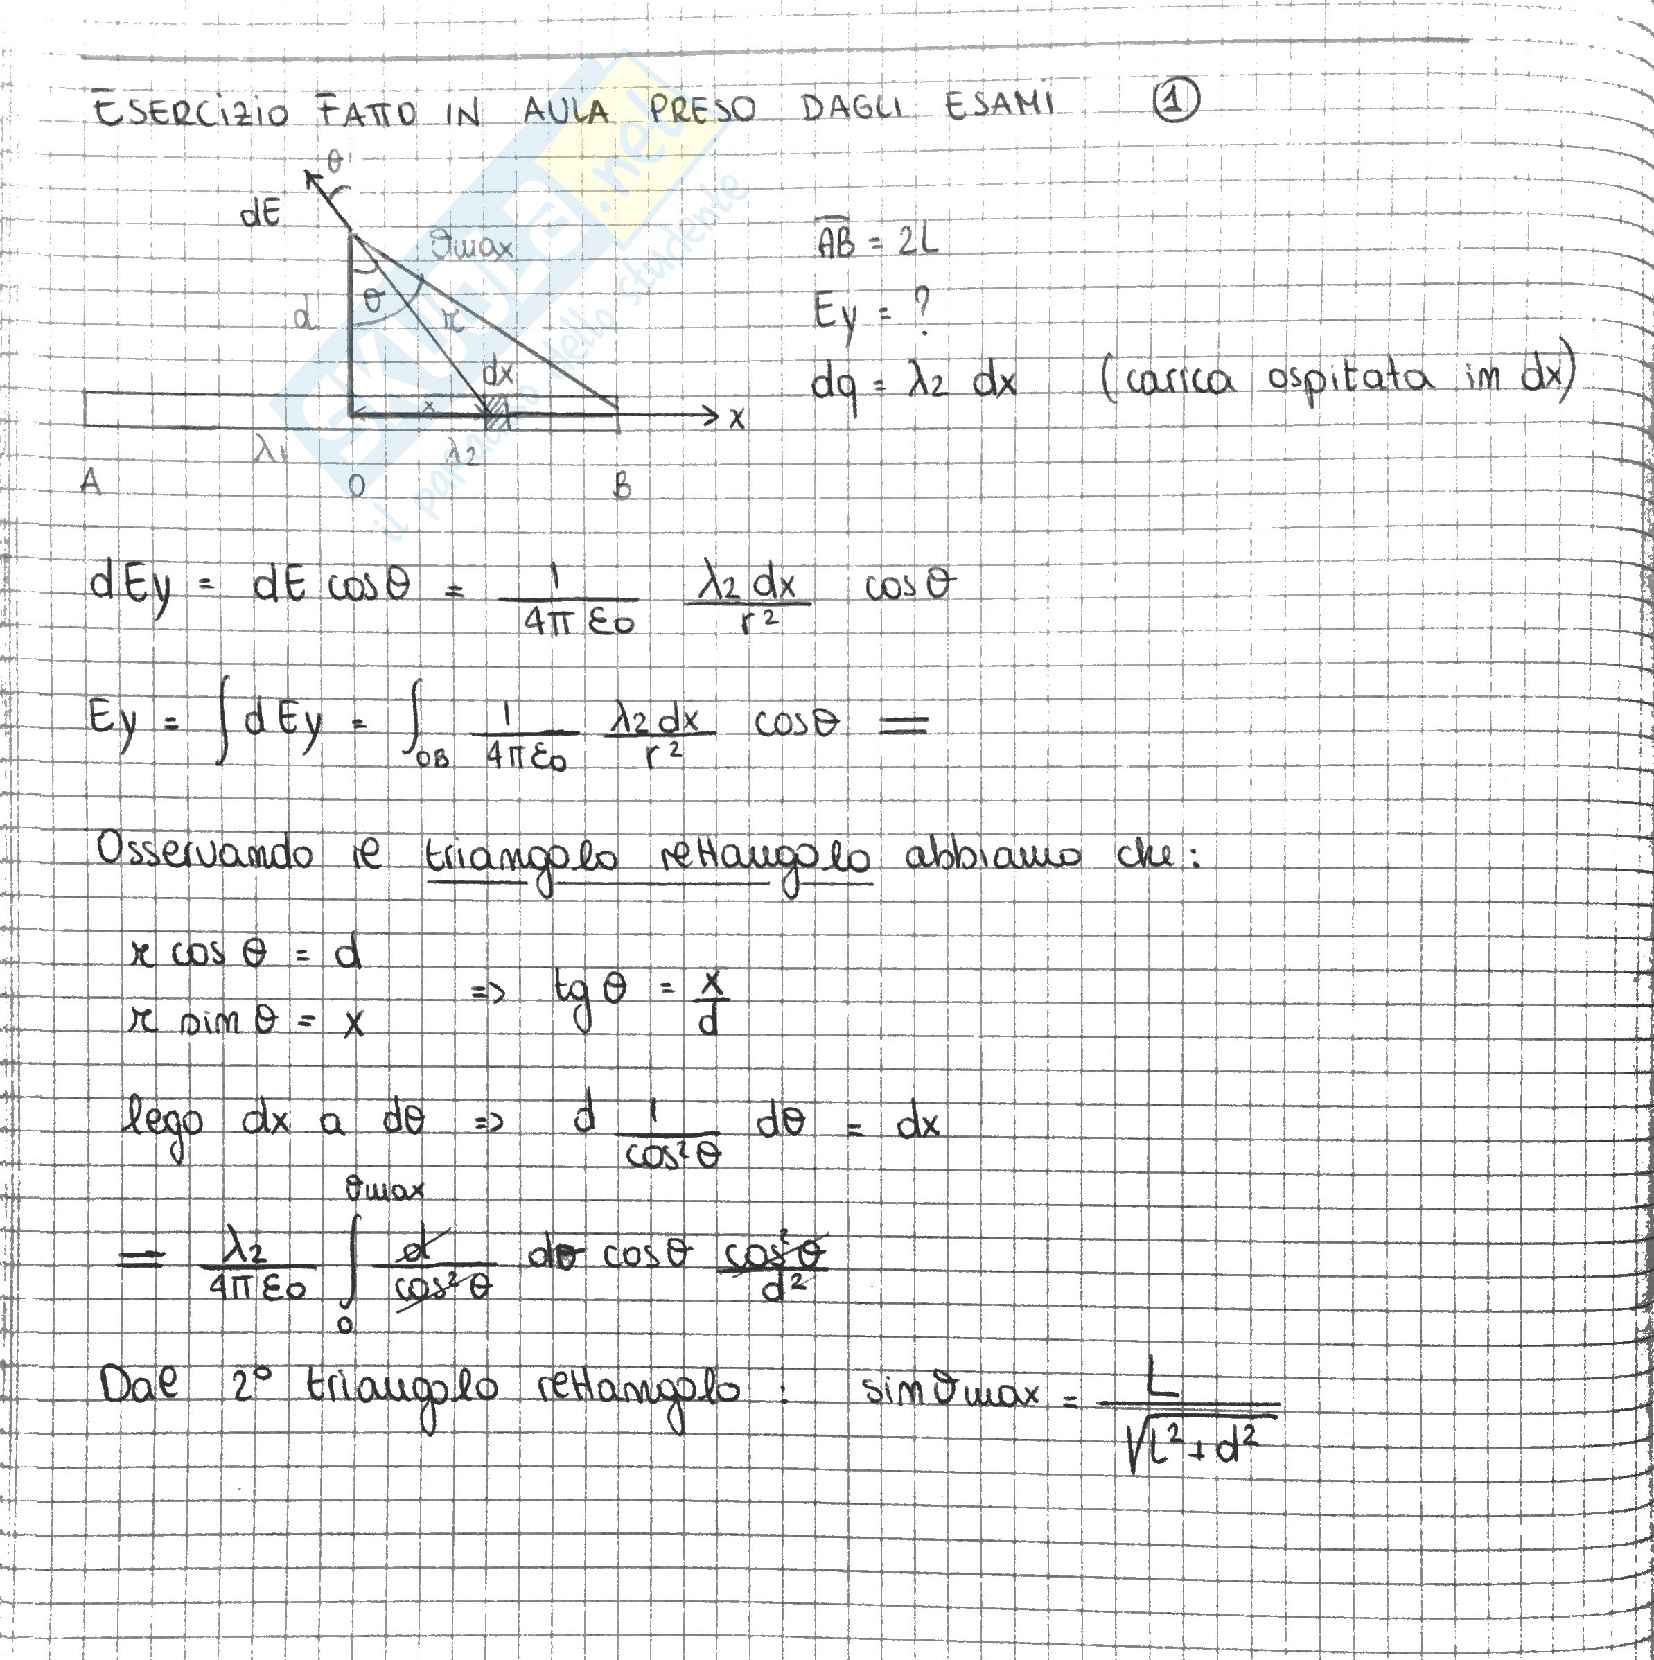 ESERCIZIO FATTO IN AULA PRESO DAGLI ESAMI ①
θ
dE
θmax
AB = 2L
d
θ
r
Ey = ?
dx
dq = λ2 dx (carica ospitata in dx)
x
x
λ1
λ2
A
O
B
SKUOLA.net
il paradiso dello studente
dEy = dE cosθ = 1/(4πε0) λ2 dx/r² cosθ
Ey = ∫ dEy = ∫OB 1/(4πε0) λ2 dx/r² cosθ =
Osservando il triangolo rettangolo abbiamo che:
r cos θ = d
r sin θ = x
=> tg θ = x/d
lego dx a dθ => d 1/cos²θ dθ = dx
= λ2/(4πε0) ∫0^θmax d/cos²θ dθ cosθ cos²θ/d²
Dal 2° triangolo rettangolo : sinθmax = L/√(L²+d²)